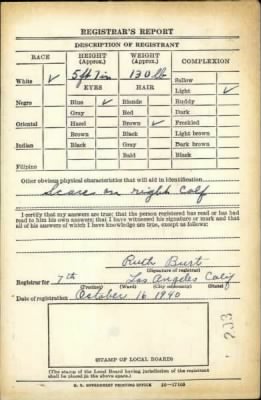 REGISTRAR'S REPORT
DESCRIPTION OF REGISTRANT
RACE HEIGHT (Approx.) WEIGHT (Approx.) COMPLEXION
White ✓ 5 ft 7 in 130 lb Sallow
EYES HAIR Light ✓
Negro Blue ✓ Blonde Ruddy
Gray Red Dark
Oriental Hazel Brown ✓ Freckled
Brown Black Light brown
Indian Black Gray Dark brown
Bald Black
Filipino
Other obvious physical characteristics that will aid in identification
Scares on right calf
I certify that my answers are true; that the person registered has read or has had
read to him his own answers; that I have witnessed his signature or mark and that
all of his answers of which I have knowledge are true, except as follows:
Ruth Burt
(Signature of registrar)
Registrar for 7th Los Angeles Calif
(Precinct) (Ward) (City or county) (State)
Date of registration October 16 1940
203
STAMP OF LOCAL BOARD
(The stamp of the Local Board having jurisdiction of the registrant
shall be placed in the above space.)
U. S. GOVERNMENT PRINTING OFFICE 16—17105